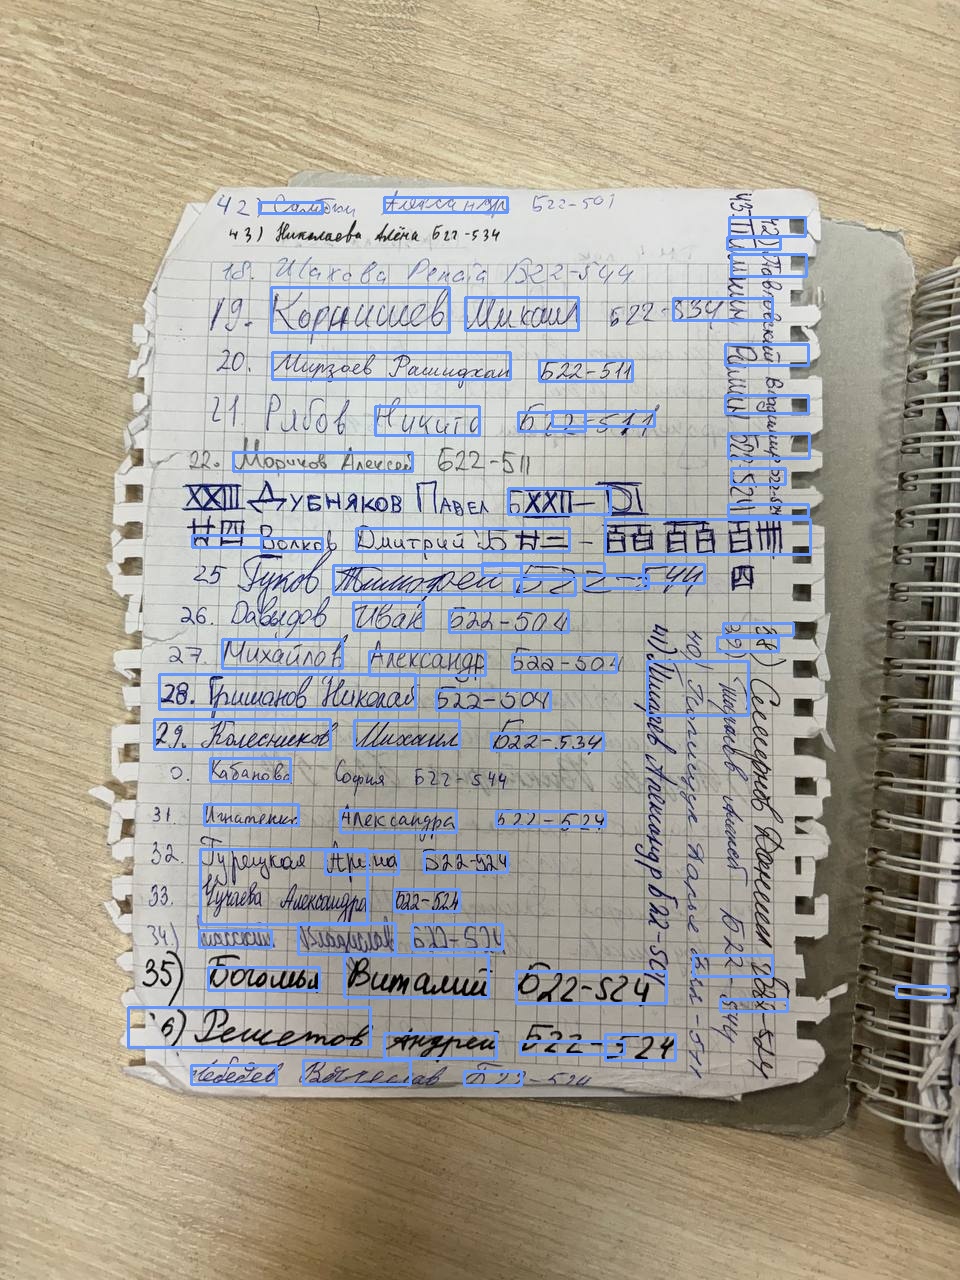 42) Александр Б22-501
43) Николаева Алёна Б22-534
18. Шахова Рената Б22-544
19. Корнишев Михаил Б22-534
20. Мирзоев Рашидхан Б22-511
21. Рябов Никита Б22-511
22. Мориков Алексей Б22-511
XXIII Дубняков Павел БXXII-
Волков Дмитрий Б
25 Гуков Тимофей Б22-544
26. Давыдов Иван Б22-504
27. Михайлов Александр Б22-504
28. Гриманов Николай Б22-504
29. Колесников Михаил Б22-534
0. Кабанова София Б22-544
31. Игнатенко Александра Б22-524
32. Турецкая Арина Б22-924
33. Чучаева Александра Б22-524
34.) Владислав Б22-524
35) Богомья Виталий Б22-524
36) Решетов Андрей Б22-524
Лебедев Вячеслав Б22-524
42) Павловский Владимир Б22-521
43 Пимкин Роман Б22-521
38) Селиверстов Даниил Б22-524
39) Алексей Б22-544
40) Дарья Б22-511
41) Александр Б22-501